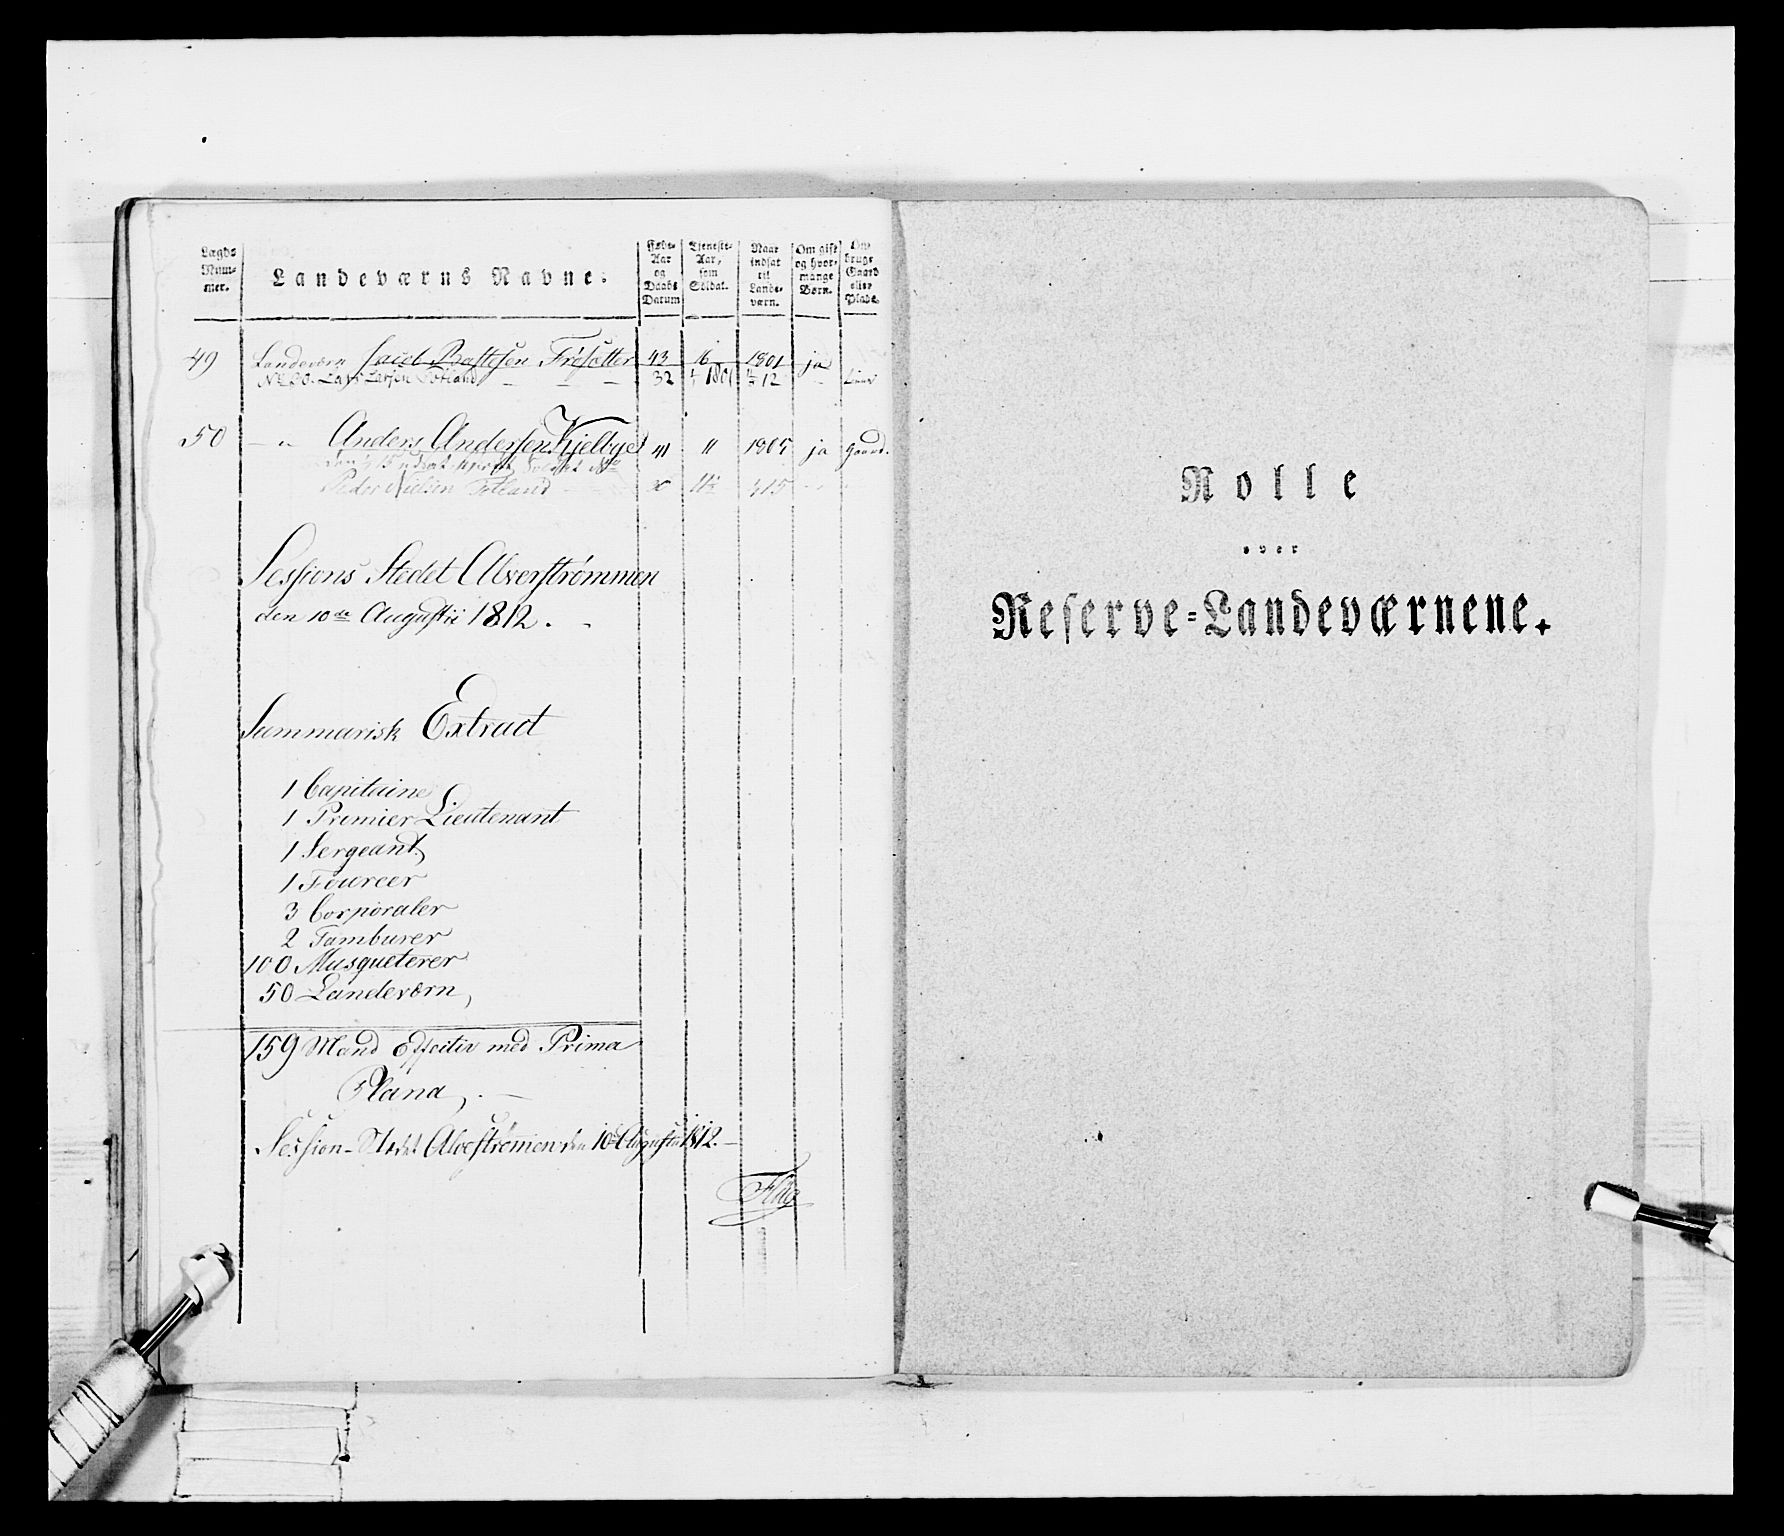 Lægds Nummer.
Landeværns Navne.
Føde-Aar og Daabs Datum
Tjeneste-Aar, som Soldat.
Naar indsat til Landeværn.
Om gift og hvormange Børn.
Om bruge Gaard eller Plads.
49 Landeværn Jacob Frøsetter 43 16 1801 ja
No 20. Lars Larsen Fotland 32 1801 12
50 Anders Andersen Kjelbye 41 11 1805 ja Gaard.
Peder Nielsen Fotland
Sessions Stedet Alverstrømmen
den 10de Augustii 1812.
Summarisk Extract
1 Capitaine
1 Premier Lieutenant
1 Sergeant
1 Foureer
3 Corporaler
2 Tamburer
100 Musqueterer
50 Landeværn,
159 Mand Effectiv med Prima
Plana
Session-Stedet Alverstrømmen den 10de Augustii 1812.
Rolle
over
Reserve-Landeværnene.